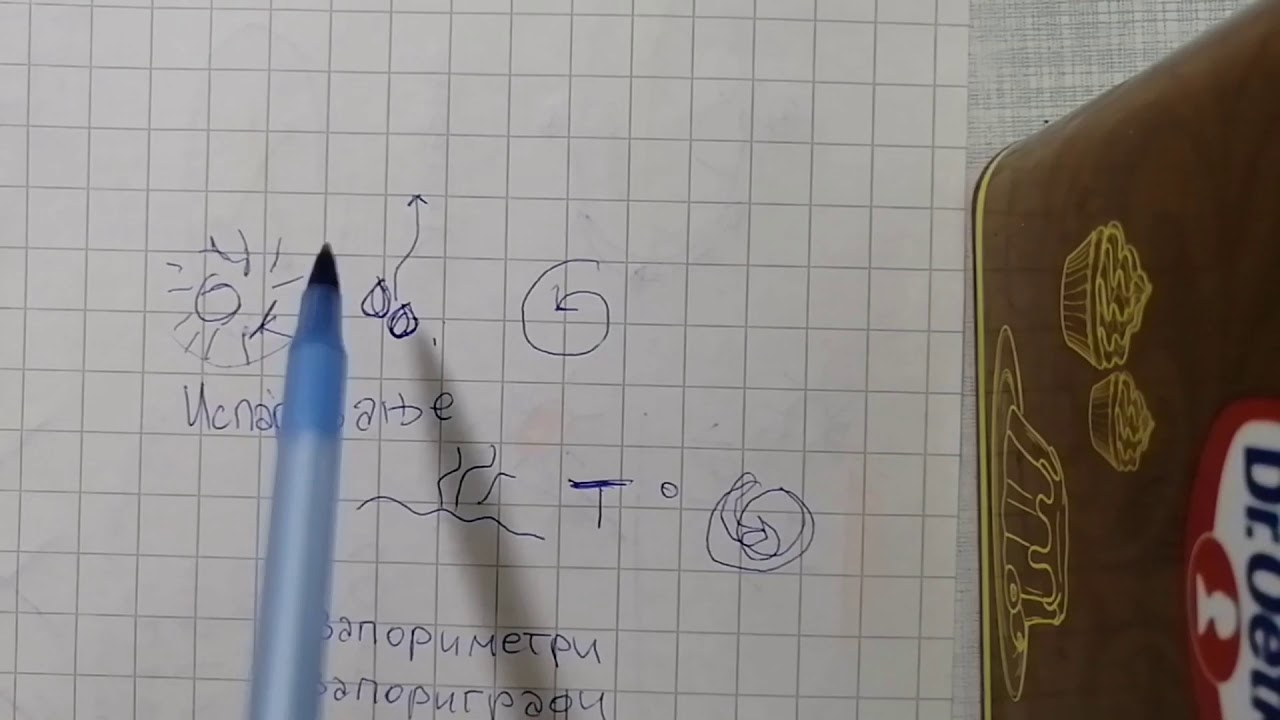 Испа ање
T °
вапориметри
вапориграфи
Dr.Oetk